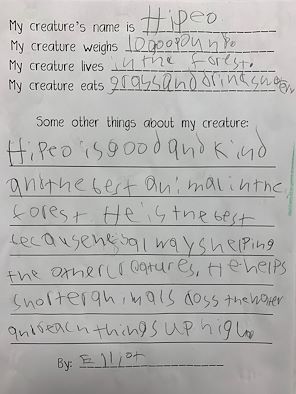 My creature's name is Hipeo.
My creature weighs 10000pounds.
My creature lives in the forest.
My creature eats grass and drinks water
Some other things about my creature:
Hipeo is good and kind
and the best animal in the
forest. He is the best
because he is always helping
the other creatures. He helps
shorter animals coss the water
and reach things up high
By: Elliot